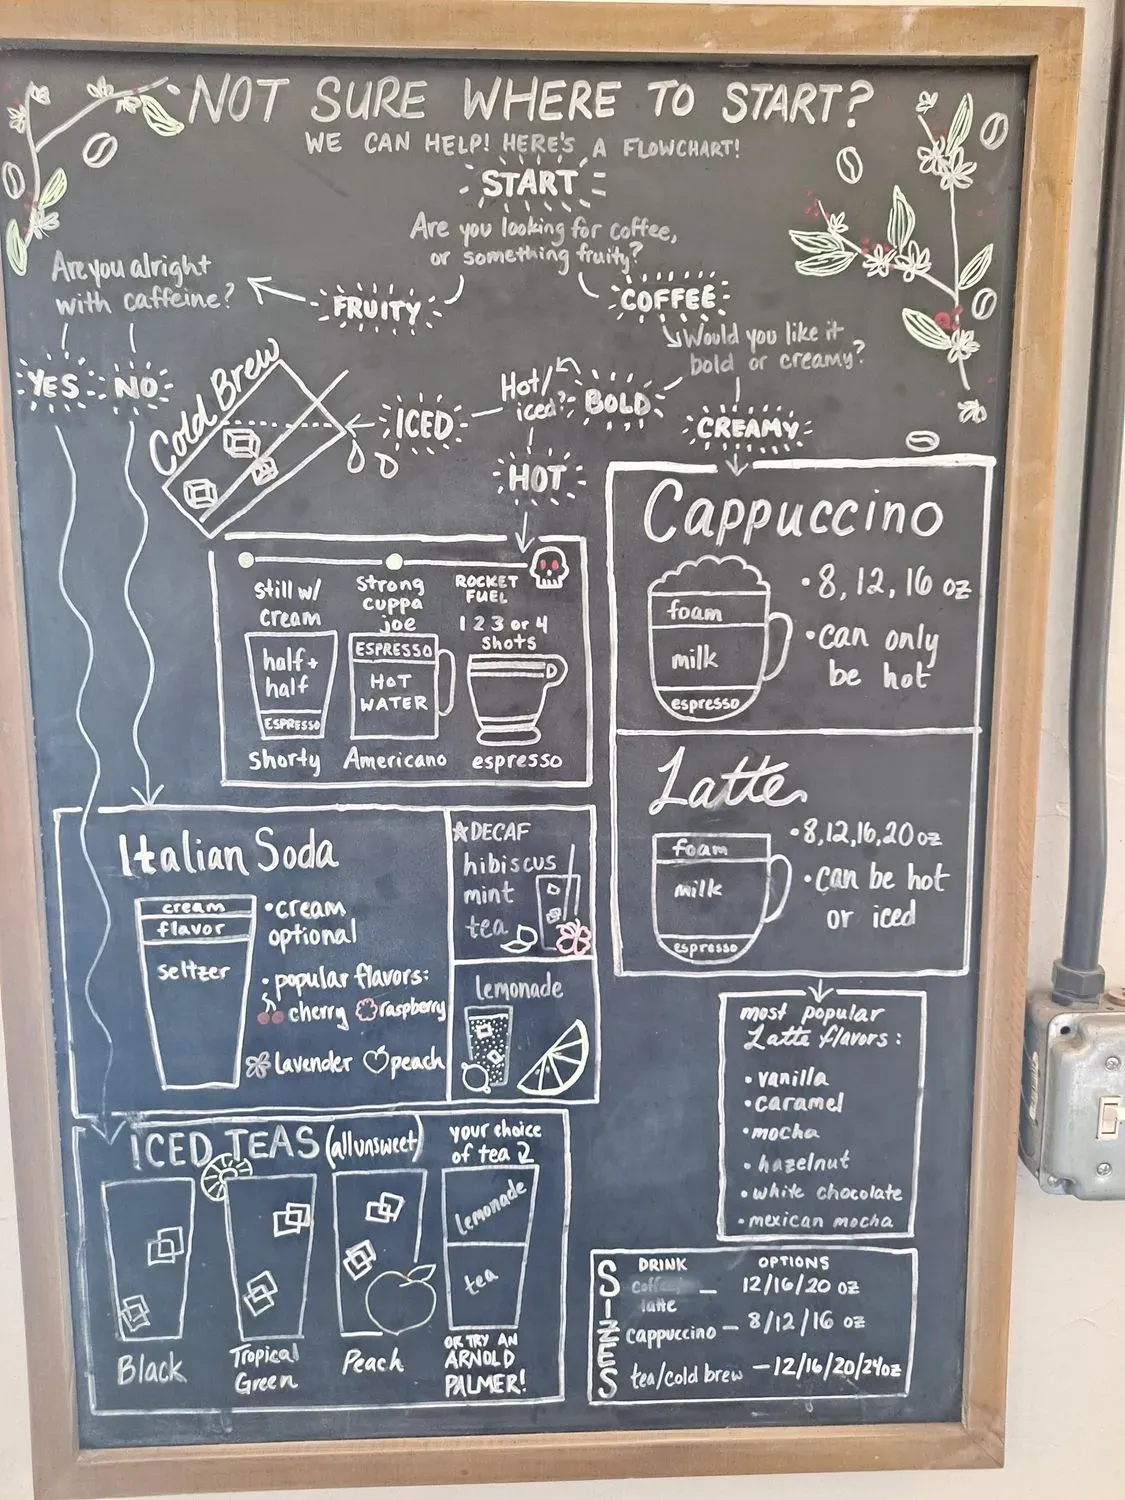 NOT SURE WHERE TO START?
WE CAN HELP! HERE'S A FLOWCHART!
START
Are you looking for coffee,
or something fruity?
FRUITY
COFFEE
Are you alright
with caffeine?
YES
NO
Would you like it
bold or creamy?
BOLD
CREAMY
Hot/
iced?
ICED
HOT
Cold Brew
still w/
cream
half +
half
ESPRESSO
Shorty
strong
cuppa
joe
ESPRESSO
HOT
WATER
Americano
ROCKET
FUEL
1 2 3 or 4
shots
espresso
Cappuccino
foam
milk
espresso
•8, 12, 16 oz
•can only
be hot
Latte
foam
milk
espresso
•8,12,16,20 oz
•can be hot
or iced
Italian Soda
cream
flavor
seltzer
•cream
optional
•popular flavors:
cherry raspberry
lavender peach
☆DECAF
hibiscus
mint
tea
lemonade
most popular
Latte flavors:
•vanilla
•caramel
•mocha
•hazelnut
•white chocolate
•mexican mocha
ICED TEAS (all unsweet)
Black
Tropical
Green
Peach
your choice
of tea
lemonade
tea
OR TRY AN
ARNOLD
PALMER!
SIZES
DRINK OPTIONS
coffee/ — 12/16/20 oz
latte
cappuccino — 8/12/16 oz
tea/cold brew — 12/16/20/24oz